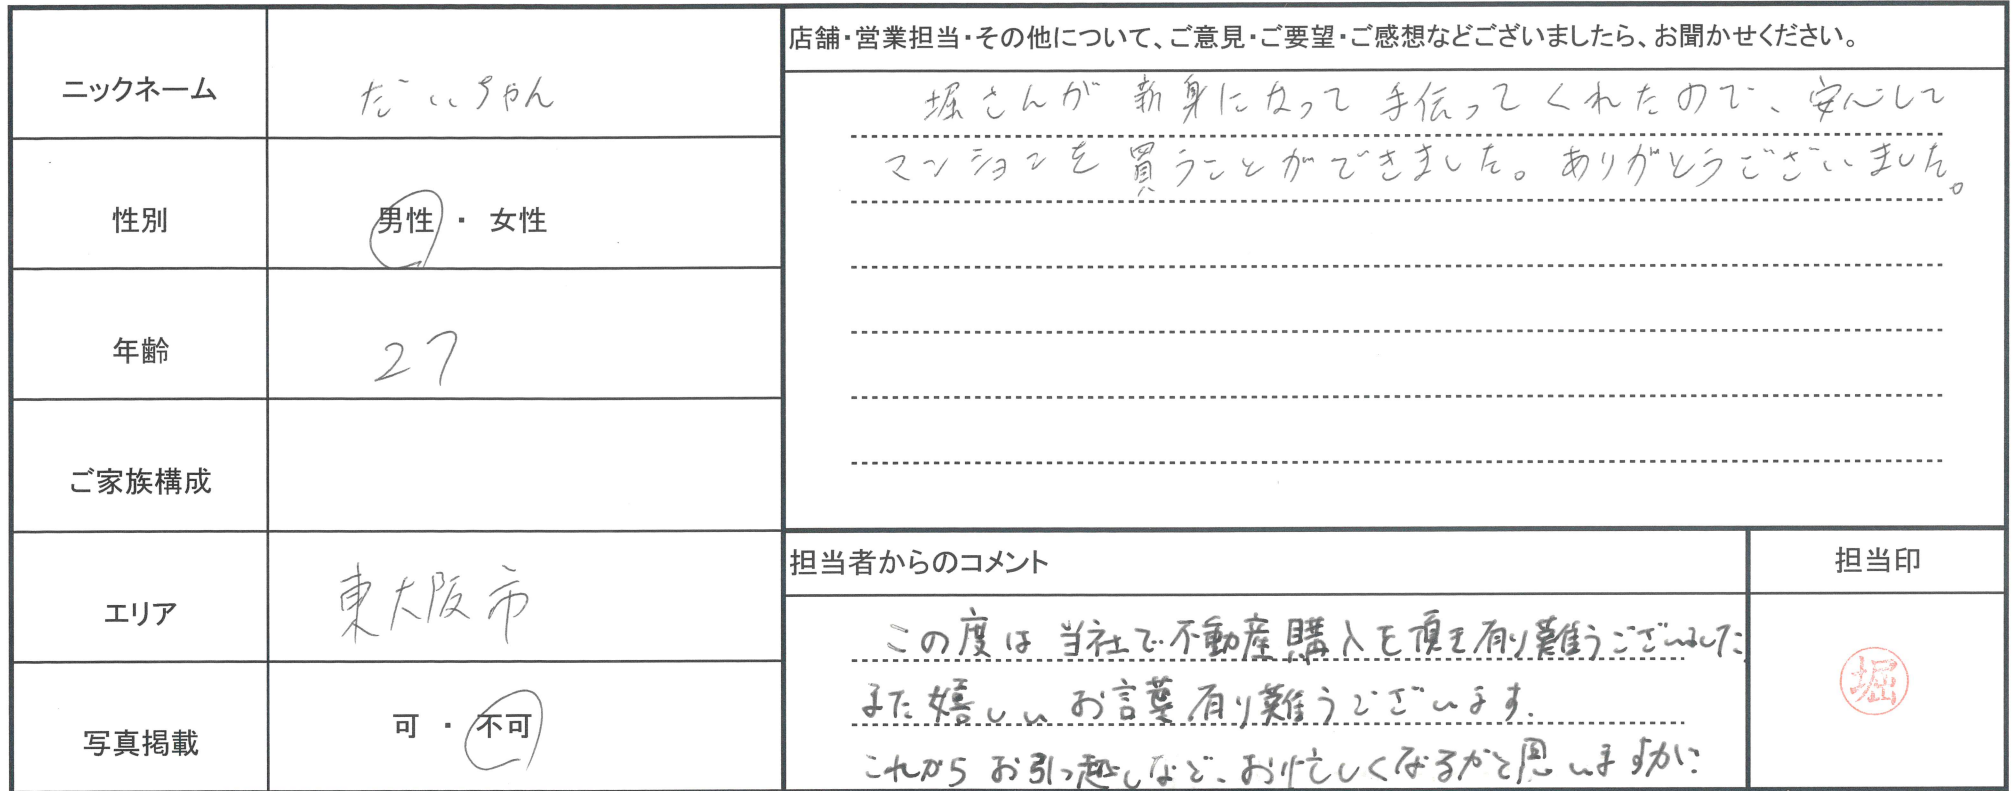 ニックネーム だいちゃん
性別 男性 ・ 女性
年齢 27
ご家族構成
エリア 東大阪市
写真掲載 可 ・ 不可
店舗・営業担当・その他について、ご意見・ご要望・ご感想などございましたら、お聞かせください。
堀さんが親身になって手伝ってくれたので、安心して
マンションを買うことができました。ありがとうございました。
担当者からのコメント
この度は当社で不動産購入を頂き有り難うございました
また嬉しいお言葉有り難うございます.
これからお引っ越しなど、お忙しくなるかと思いますが
担当印
堀